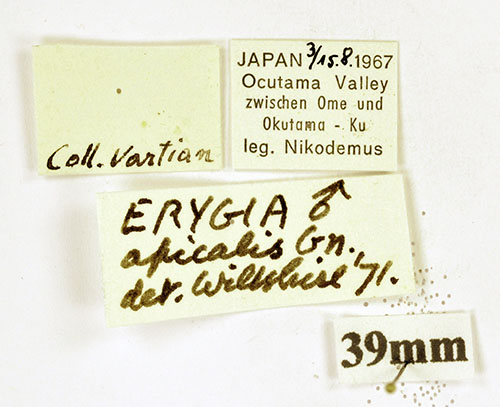 Coll. Vartian
JAPAN 3/15.8.1967
Ocutama Valley
zwischen Ome und
Okutama - Ku
leg. Nikodemus
ERYGIA ♂
apicalis Gn.,
det. Wiltshire '71.
39mm